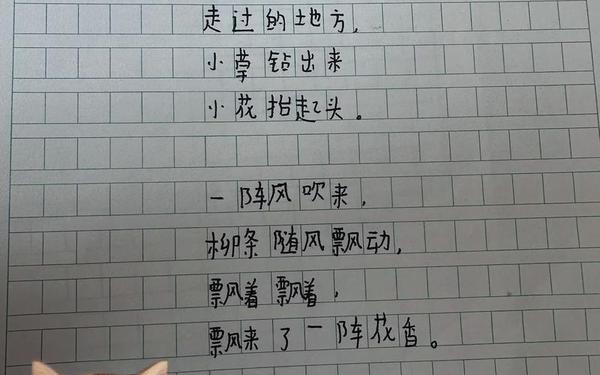 走过的地方，
小草钻出来
小花抬起头。
一阵风吹来，
柳条随风飘动，
飘着飘着，
飘来了一阵花香。